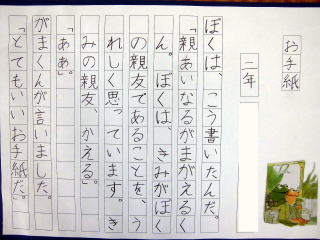 お手紙
二年
ぼくは、こう書いたんだ。
「親あいなるがまがえるく
ん。ぼくは、きみがぼく
の親友であることを、う
れしく思っています。き
みの親友、かえる。」
「ああ。」
がまくんが言いました。
「とてもいいお手紙だ。」